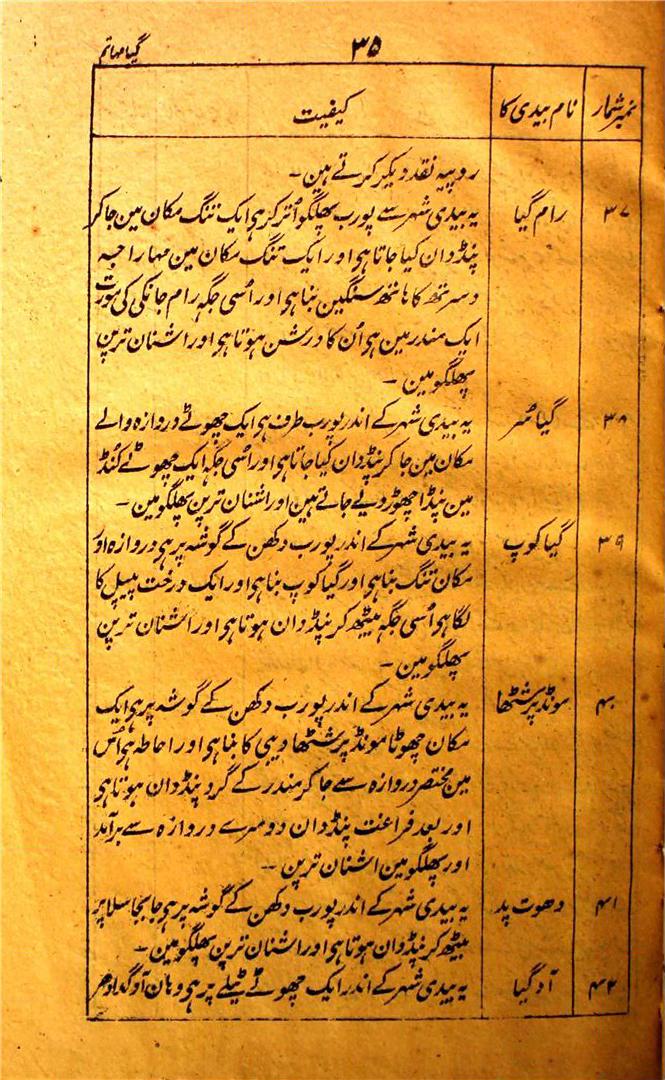 گیا مہاتم ۳۵
نمبر شمار نام بیدی کا کیفیت
روپیہ نقد دیکر کرتے ہین ۔
۳۷ رام گیا یہ بیدی شہر سے پورب پھلگو اُتر کر ہی ایک تنگ مکان مین جا کر
پنڈدان کیا جاتا ہی اور ایک تنگ مکان مین مہاراجہ
دسرتھ کا ہاتھ سنگین بنا ہی اور اُسی جگہ رام جانکی کی مورت
ایک مندر مین ہی اُن کا درشن ہوتا ہی اور اشنان ترپن
پھلگو مین ۔
۳۸ گیا سُر یہ بیدی شہر کے اندر پورب طرف ہی ایک چھوٹے دروازہ والے
مکان مین جا کر پنڈدان کیا جاتا ہی اور اُسی جگہ ایک چھوٹے کُنڈ
مین پنڈا چھوڑ دیے جاتے ہین اور اشنان ترپن پھلگو مین ۔
۳۹ گیا کوپ یہ بیدی شہر کے اندر پورب دکھن کے گوشہ پر ہی دروازہ اور
مکان تنگ بنا ہی اور گیا کوپ بنا ہی اور ایک درخت پیپل کا
لگا ہی اُسی جگہ بیٹھ کر پنڈدان ہوتا ہی اور اشنان ترپن
پھلگو مین ۔
۴۰ مونڈ پرشٹھا یہ بیدی شہر کے اندر پورب دکھن کے گوشہ پر ہی ایک
مکان چھوٹا مونڈ پرشٹھا دیبی کا بنا ہی اور احاطہ ہی اُس
مین مختصر دروازہ سے جا کر مندر کے گرد پنڈدان ہوتا ہی
اور بعد فراغت پنڈدان دوسرے دروازہ سے برآمد
اور پھلگو مین اشنان ترپن ۔
۴۱ دھوت پد یہ بیدی شہر کے اندر پورب دکھن کے گوشہ پر ہی جا بجا سلا پر
بیٹھ کر پنڈدان ہوتا ہی اور اشنان ترپن پھلگو مین ۔
۴۲ آد گیا یہ بیدی شہر کے اندر ایک چھوٹے ٹیلے پر ہی وہان